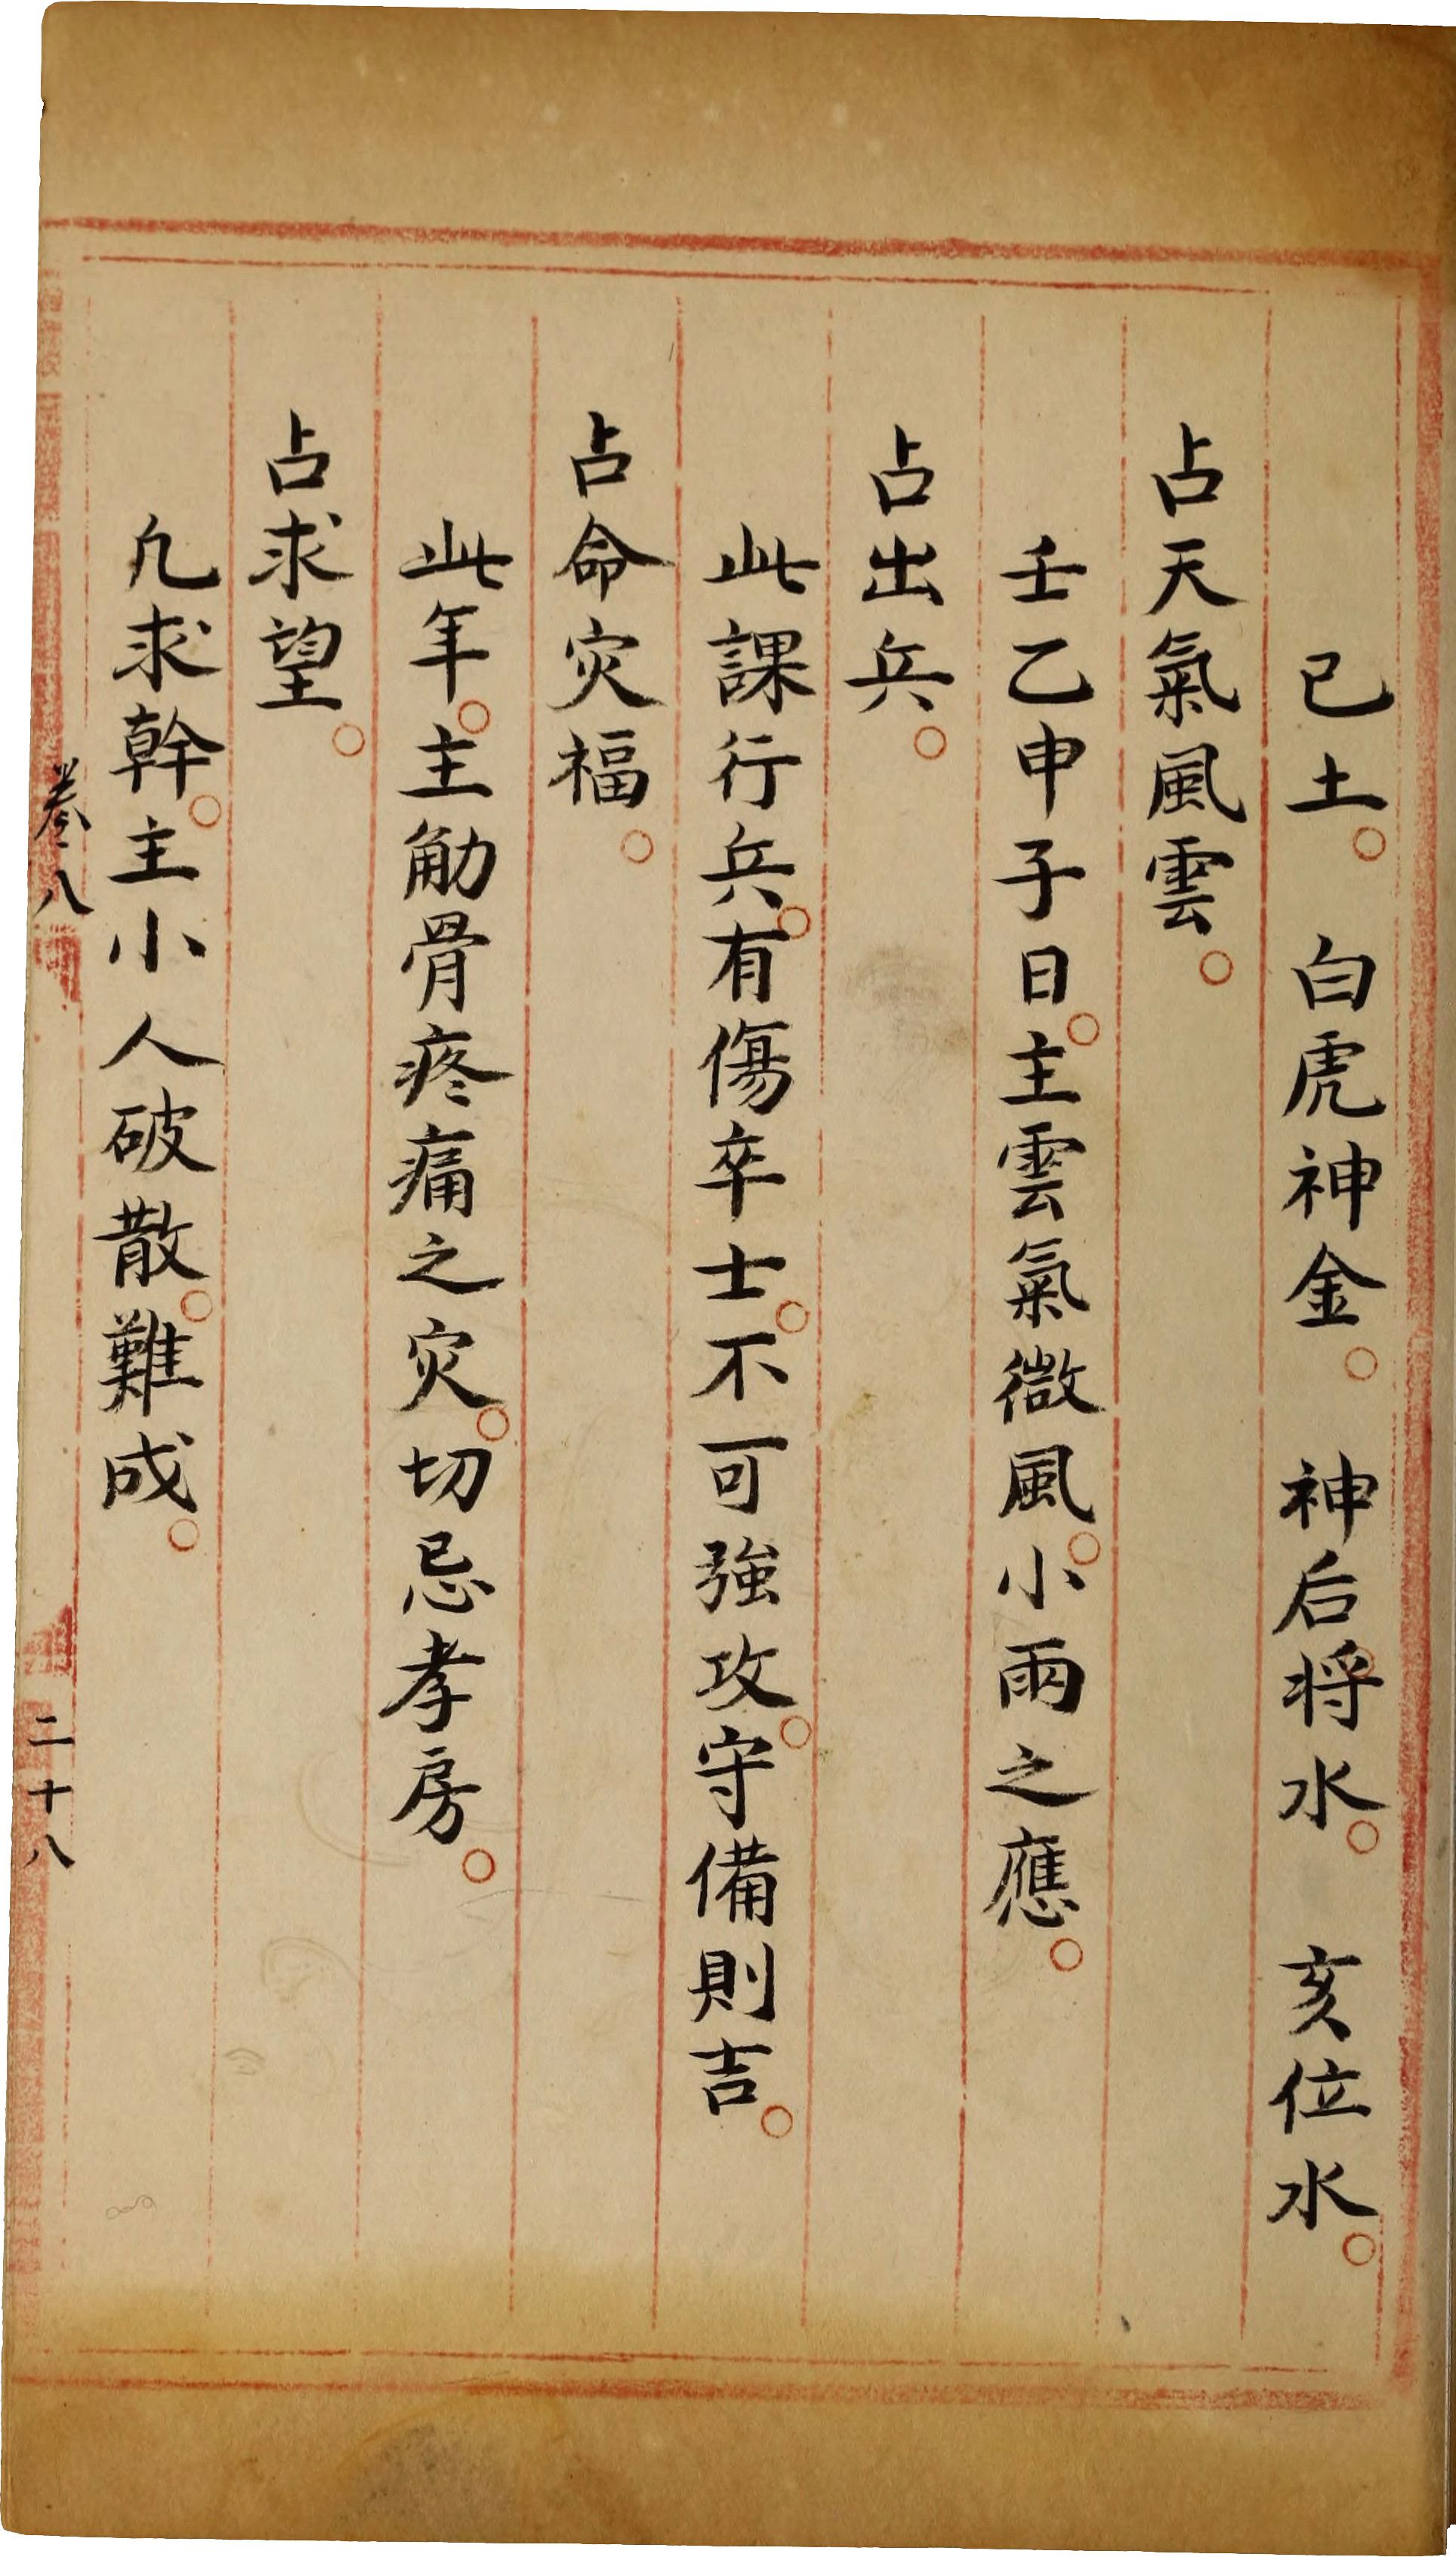 已土。 白虎神金。 神后将水。 亥位水。
占天氣風雲。
壬乙申子日。主雲氣微風。小雨之應。
占出兵。
此課行兵。有傷卒士。不可強攻。守備則吉。
占命灾福。
此年。主觔骨疼痛之灾。切忌孝房。
占求望。
凢求幹。主小人破散。難成。
卷八
二十八